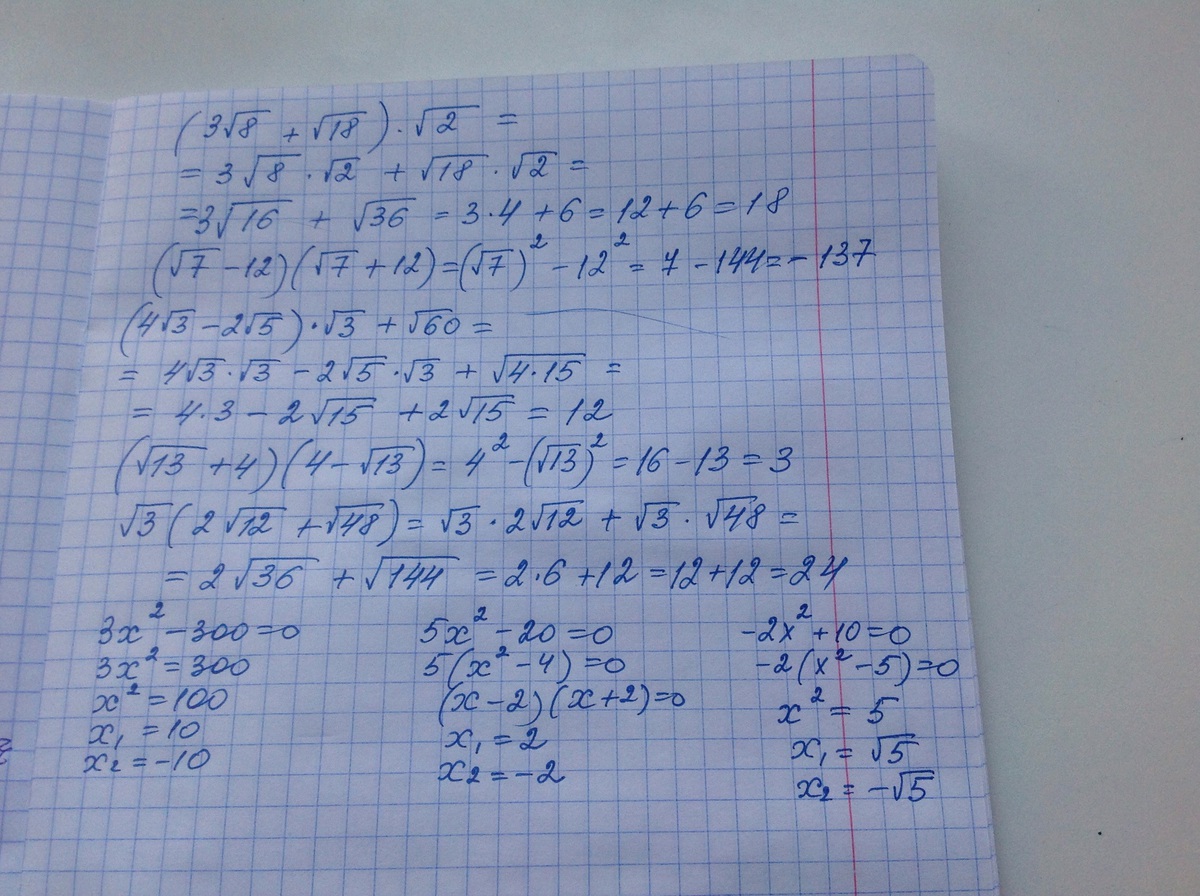 (3√8 + √18) · √2 =
= 3√8 · √2 + √18 · √2 =
= 3√16 + √36 = 3·4 + 6 = 12 + 6 = 18
(√7 - 12)(√7 + 12) = (√7)² - 12² = 7 - 144 = - 137
(4√3 - 2√5) · √3 + √60 =
= 4√3 · √3 - 2√5 · √3 + √4·15 =
= 4·3 - 2√15 + 2√15 = 12
(√13 + 4)(4 - √13) = 4² - (√13)² = 16 - 13 = 3
√3 (2√12 + √48) = √3 · 2√12 + √3 · √48 =
= 2√36 + √144 = 2·6 + 12 = 12 + 12 = 24
3x² - 300 = 0
3x² = 300
x² = 100
x₁ = 10
x₂ = -10
5x² - 20 = 0
5(x² - 4) = 0
(x - 2)(x + 2) = 0
x₁ = 2
x₂ = -2
-2x² + 10 = 0
-2(x² - 5) = 0
x² = 5
x₁ = √5
x₂ = -√5